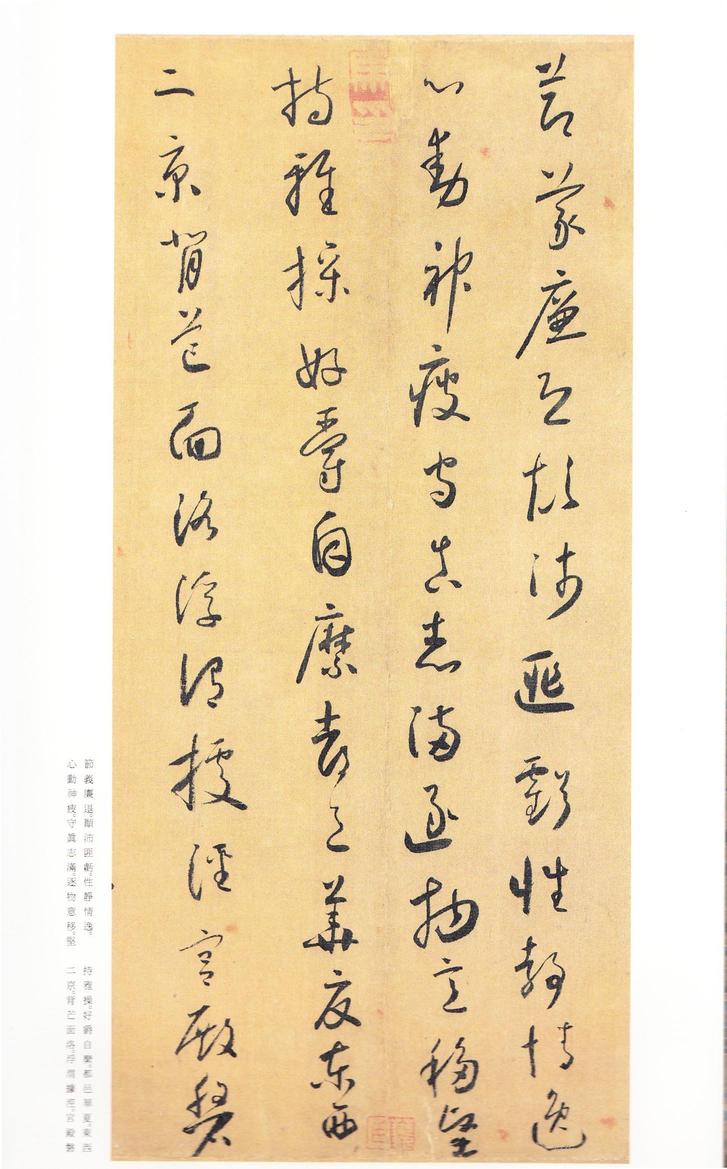 節義廉退顛沛匪虧性靜情逸
心動神疲守真志滿逐物意移堅
持雅操好爵自縻都邑華夏東西
二京背芒面洛浮渭據涇宮殿磐
節義廉退。顛沛匪虧。性靜情逸。
心動神疲。守眞志滿。逐物意移。堅
持雅操。好爵自縻。都邑華夏。東西
二京。背芒面洛。浮渭據涇。宮殿磐